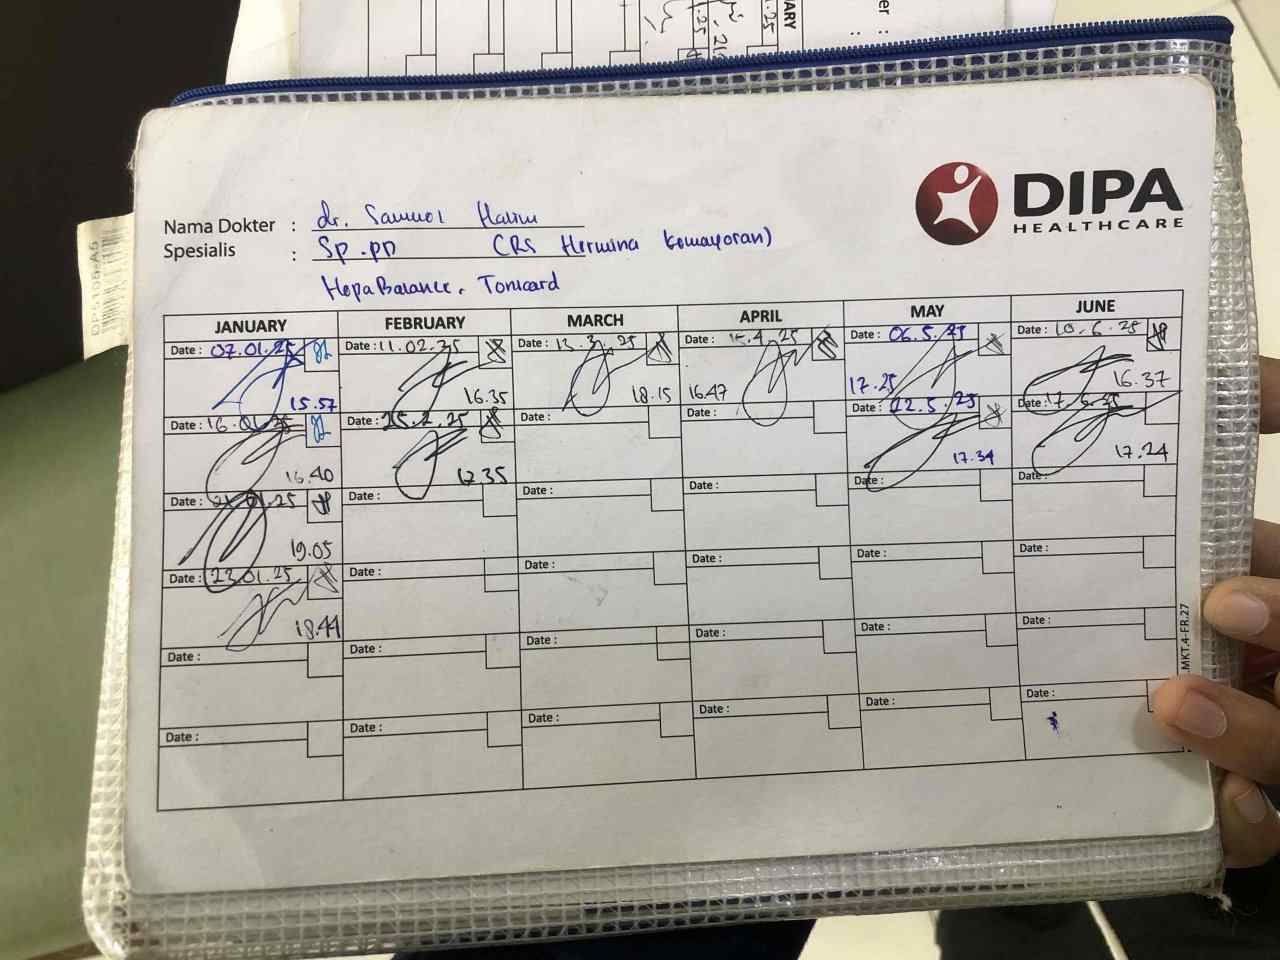 DIPA
HEALTHCARE
Nama Dokter :
Spesialis : Sp.PD (RS Hermina Kemayoran)
HepaBalance, Tonicard
JANUARY FEBRUARY MARCH APRIL MAY JUNE
Date : 07.01.25 Date : 11.02.25 Date : 13.3.25 Date : 15.4.25 Date : 06.5.25 Date : 10.6.25
15.57 16.35 18.15 16.47 17.25 16.37
Date : 16.01.25 Date : 25.2.25 Date : Date : Date : 22.5.25 Date : 17.6.25
16.40 17.35 17.34 17.24
Date : Date : Date : Date : Date : Date :
19.05
Date : 23.01.25 Date : Date : Date : Date : Date :
18.44
Date : Date : Date : Date : Date : Date :
Date : Date : Date : Date : Date : Date :
.MKT.4-FR.27